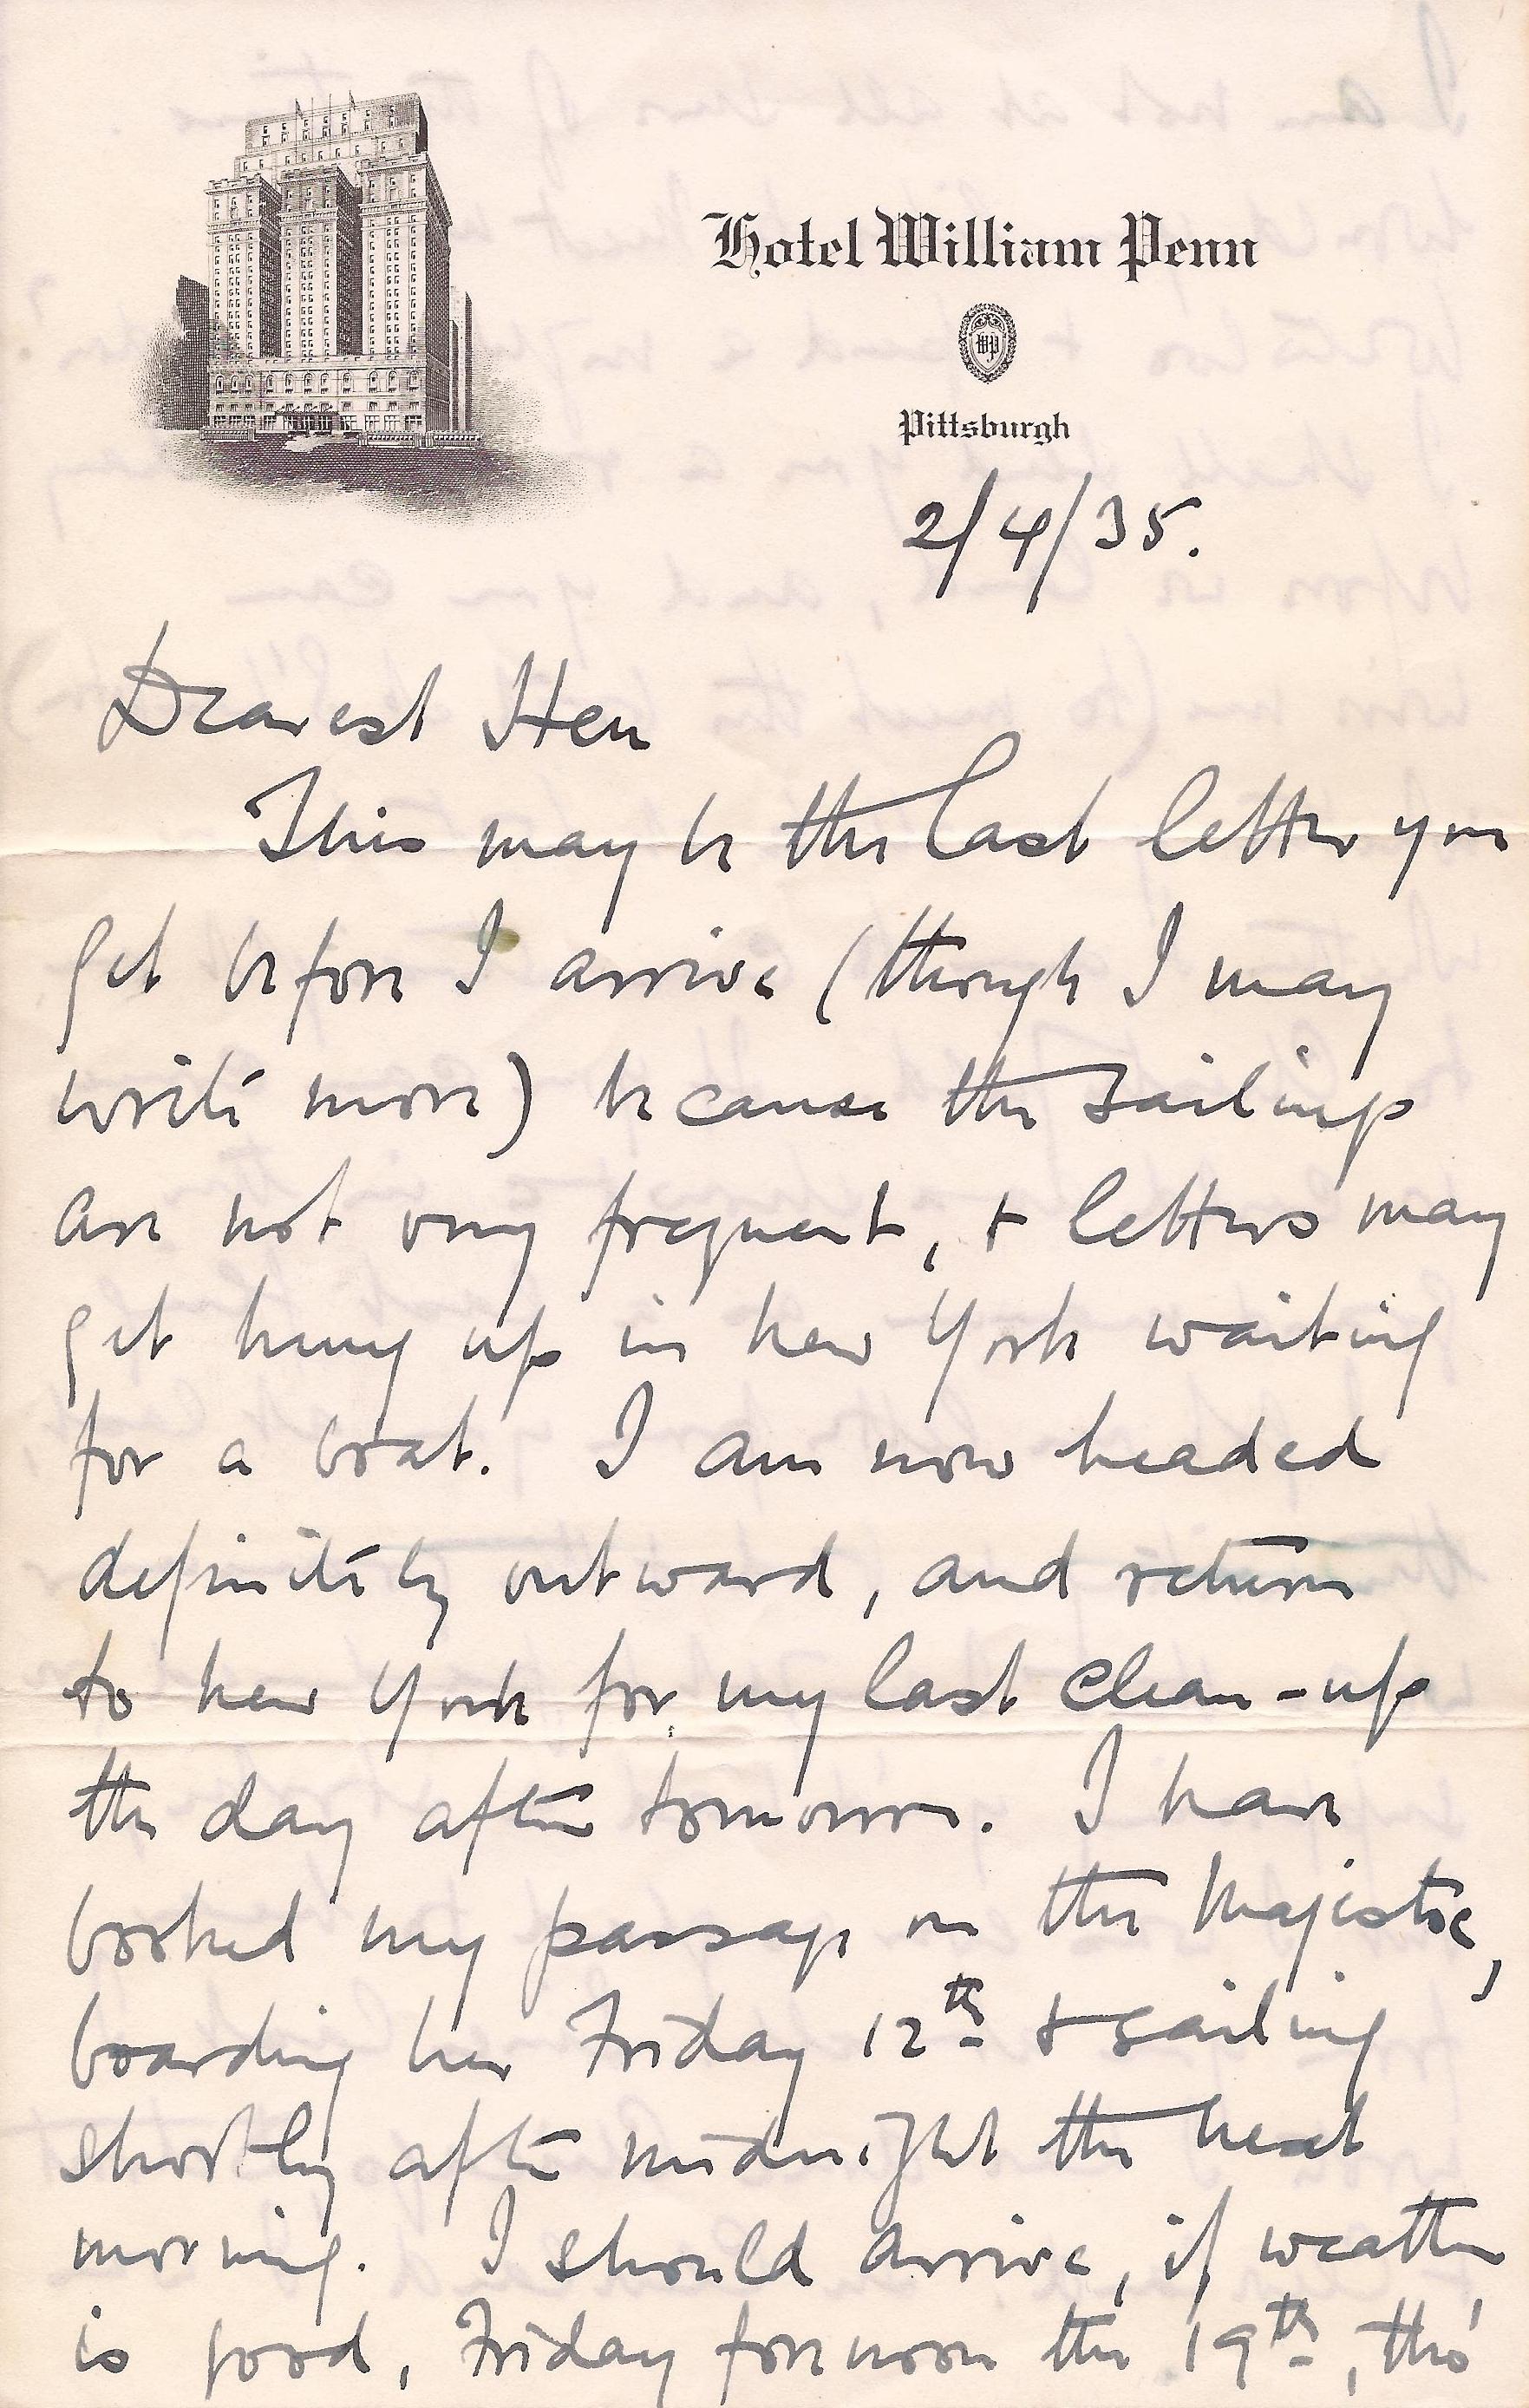 Hotel William Penn
WP
Pittsburgh
2/4/35.
Dearest Hen
This may be the last letter you
get before I arrive (though I may
write more) because the sailings
are not very frequent, + letters may
get hung up in New York waiting
for a boat. I am now headed
definitely outward, and return
to New York for my last clean-up
the day after tomorrow. I have
booked my passage on the Majestic,
boarding her Friday 12th + sailing
shortly after midnight the next
morning. I should arrive, if weather
is good, Friday forenoon the 19th, tho'